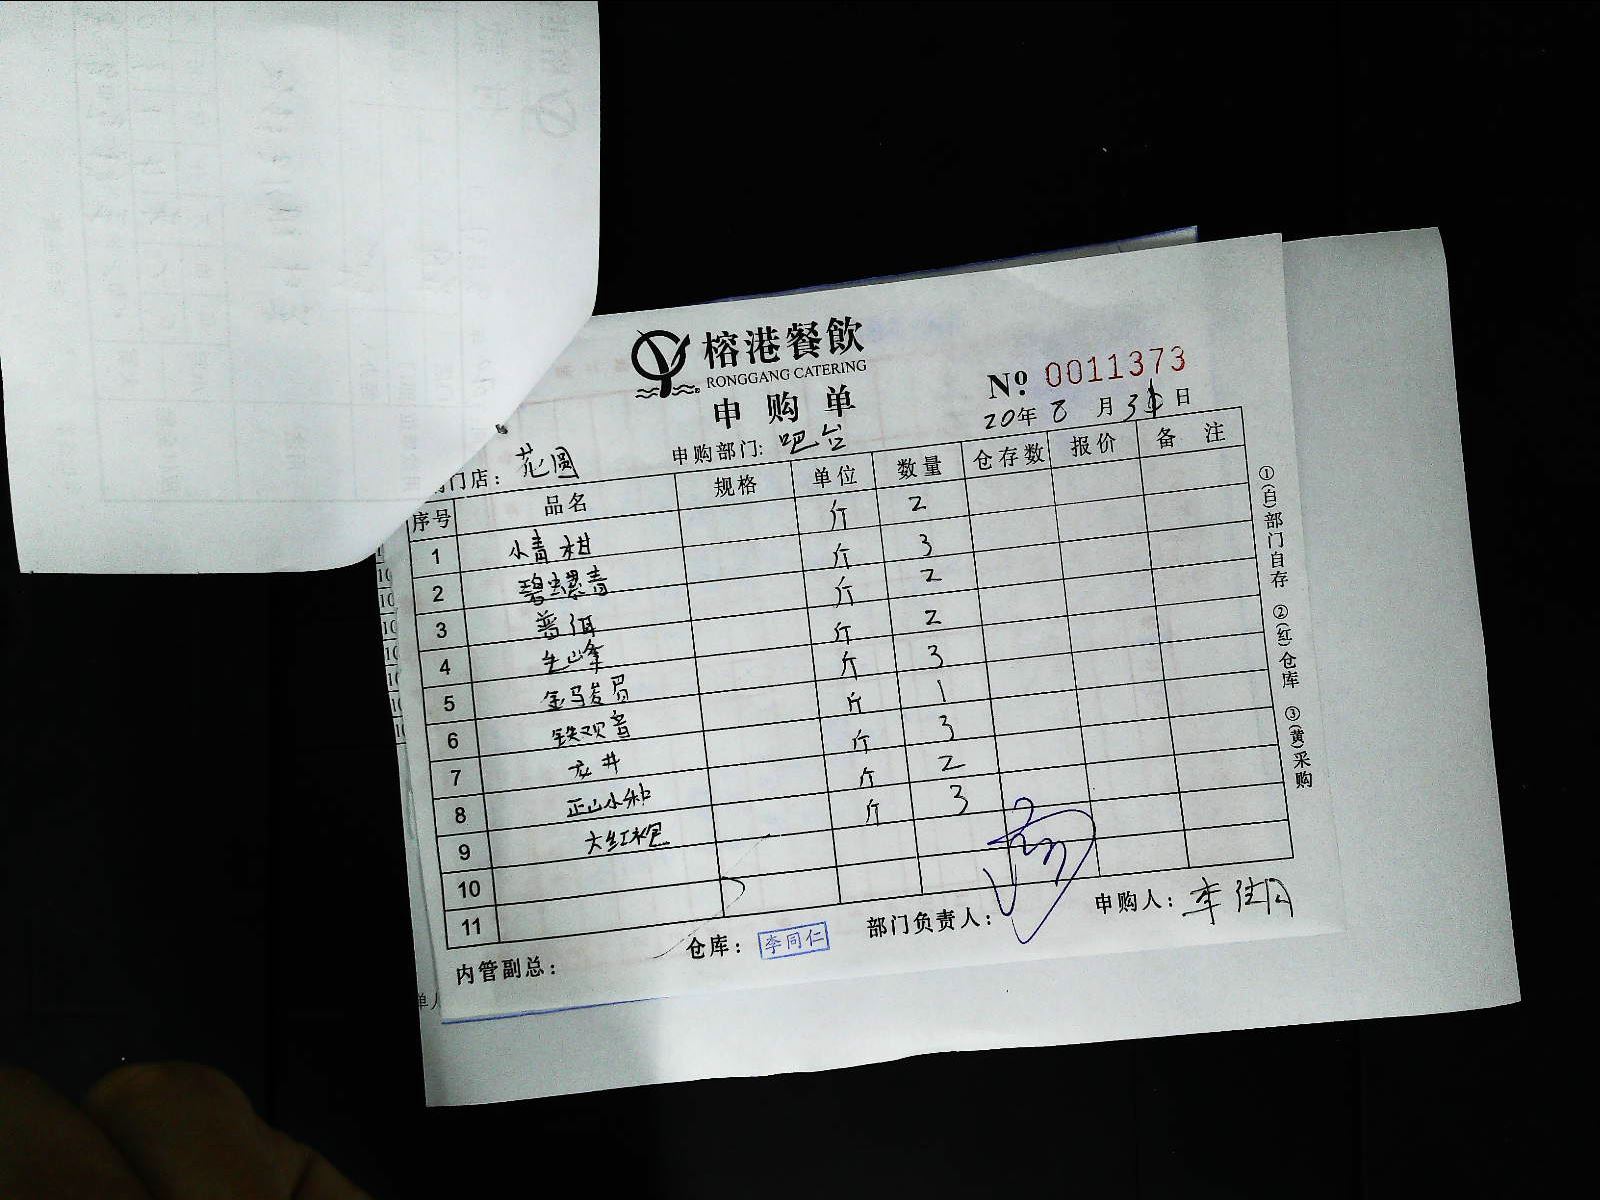 榕港餐飲
RONGGANG CATERING
申购单
№ 0011373
20年 8 月 31 日
门店： 花圆
申购部门: 吧台
序号 品名 规格 单位 数量 仓存数 报价 备 注
1 小青柑 斤 2
2 碧螺青 斤 3
3 普洱 斤 2
4 毛山峰 斤 2
5 金马发眉 斤 3
6 铁观音 斤 1
7 龙井 斤 3
8 正山小和 斤 2
9 大红袍 斤 3
10
11
①(白)部门自存 ②(红)仓库 ③(黄)采购
内管副总：
仓库： 李同仁
部门负责人：
申购人： 李